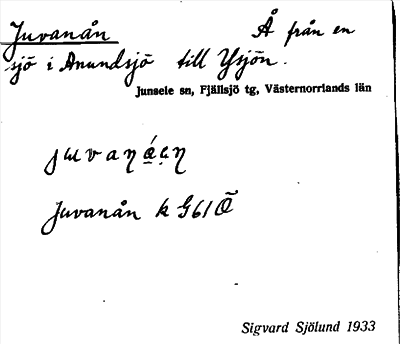 Juvanån Å från en
sjö i Anundsjö till Ysjön.
Junsele sn, Fjällsjö tg, Västernorrlands län
Juvanån k G61Ö
Sigvard Sjölund 1933